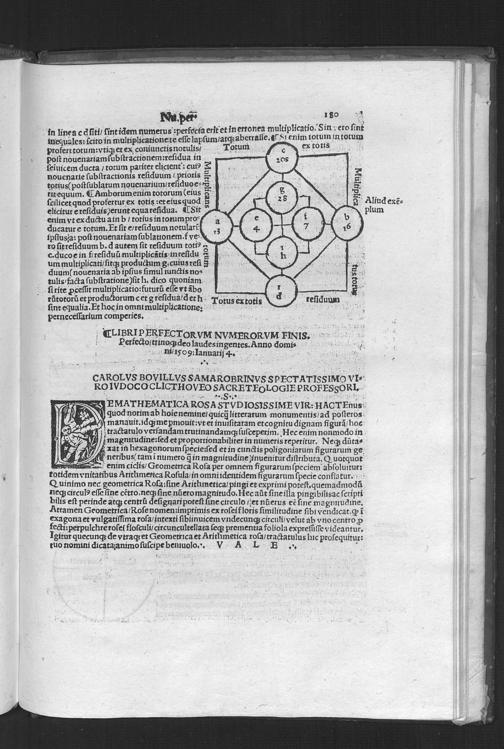 Nu. perf. 180
in linea c d siti / sint idem numerus: perfecta erit et in erronea multiplicatio. Sin vero sint
inequales: scito in multiplicatione te esse lapsum / atque aberrasse. ¶ Si enim totum in totum
profert totum: utique et ex coniunctis notulis /
post novenariam substractionem: residua in
seinvicem ducta / totum pariter elicient: cuius
novenarie substractionis residuum / prioris
totius / post sublatum novenarium: residuo e-
rit equum. ¶ Amborum enim totorum (eius
scilicet quod profertur ex totis: et eius quod
elicitur e residuis) erunt equa residua. ¶ Sit
enim ut ex ductu a in b / totius in totum pro-
ducatur e totum. Et sit e / residuum notularum
ipsius a: post novenariam sublationem. f ve-
ro sit residuum b. d autem sit residuum toti9
c. ducto e in f: residuum multiplicans in residu
um multiplicati: sitque productum g. cuius resi
duum (novenaria ab ipsius simul iunctis no-
tulis / facta substractione) sit h. dico quoniam
si rite processit multiplicatio: futurum esse ut ambo
rum totorum et productorum c et g residua / d et h
sint equalia. Et hoc in omni multiplicatione:
pernecessarium comperies.
Totum ex totis
Multiplicans totum
Multiplica tus totus
Totus ex totis residuum
c
208
g
28
a
13
e
4
f
7
b
16
1
h
1
d
Aliud exem-
plum
¶ LIBRI PERFECTORVM NVMERORVM FINIS.
Perfecto / trinoque deo laudes ingentes. Anno domi-
ni: 1509: Ianuarij 4.
CAROLVS BOVILLVS SAMAROBRINVS SPECTATISSIMO VI-
RO IVDOCO CLICTHOVEO SACRE TEOLOGIE PROFESSORI.
S
DE MATHEMATICA ROSA STVDIOSISSIME VIR: HACTENus
quod norim ab hoie nemine / quicque litterarum monumentis: ad posteros
manavit. idque me promovit: ut ei inusitatam et cognitu dignam figuram: hoc
tractatulo versandam trutinandamque susceperim. Hec enim non modo in
magnitudine: sed et proportionabiliter in numeris reperitur. Neque dumta-
xat in hexagonorum specie: sed et in cunctis poligoniarum figurarum ge
neribus / tam in numero quam in magnitudine / invenitur distributa. Quotquot
enim ciclis / Geometrica Rosa per omnem figurarum speciem / absolvitur:
totidem unitatibus Arithmetica Rosula / in omni identidem figurarum specie constatur.
Quinimo nec geometrica Rosa: sine Arithmetica / pingi et exprimi potest. quemadmodum
neque circulus esse sine centro. neque sine numero magnitudo. Hec autem sine illa pingibilis ac scripti
bilis est. perinde atque centrum designari potest sine circulo / et numerus esse sine magnitudine.
Attamen Geometrica / Rose nomen: imprimis ex rosei floris similitudine sibi vendicat. quod in
exagona et vulgatissima rosa / intexti sibi invicem undecunque circuli: velut ab uno centro per
fecti: perpulchre rosei flosculi circuncultellata seque prementia foliola expressisse videantur.
Igitur quecunque de utraque et Geometrica et Arithmetica rosa / tractatulus hic prosequitur:
tuo nomini dicata: animo suscipe benivolo. VALE